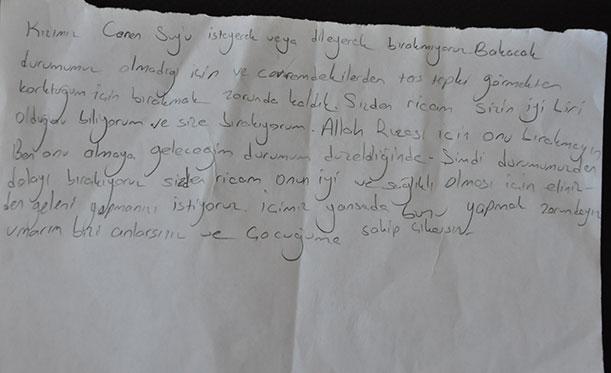 Kızımız Ceren Su'yu isteyerek veya dileyerek bırakmıyoruz Bakacak
durumumuz olmadığı için ve çevremdekilerden tepki görmekten
korktuğum için bırakmak zorunda kaldık. Sizden ricam sizin iyi biri
olduğunu biliyorum ve size bırakıyorum. Allah Rızası için onu bırakmayın
Ben onu almaya geleceğim durumum düzeldiğinde. Şimdi durumumuzdan
dolayı bırakıyoruz sizden ricam onun iyi ve sağlıklı olması için eliniz-
den geleni yapmanızı istiyoruz. içimiz yansada bunu yapmak zorundayız
umarım bizi anlarsınız ve Çocuğuma sahip çıkarsınız.